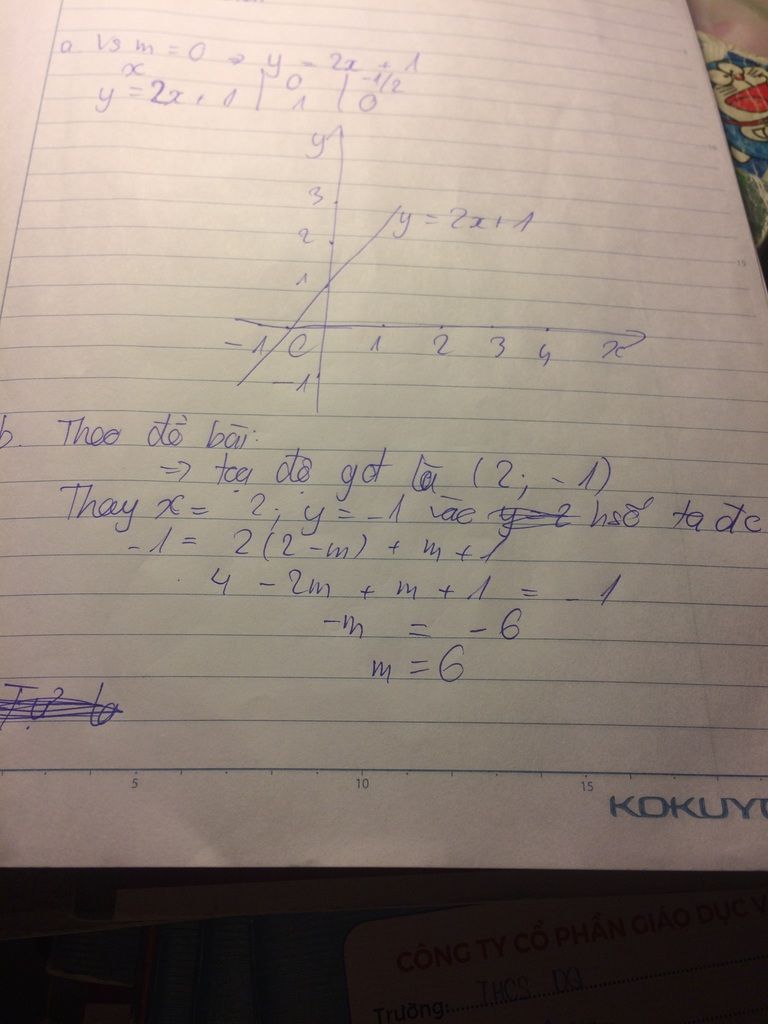 a. Vs m = 0 => y = 2x + 1
x | 0 | -1/2
y = 2x + 1 | 1 | 0
y
3
2
y = 2x + 1
1
-1 O 1 2 3 4 x
-1
b. Theo đề bài:
=> tọa độ gđ là (2; -1)
Thay x = 2; y = -1 vào hsố ta đc
-1 = 2(2 - m) + m + 1
4 - 2m + m + 1 = -1
-m = -6
m = 6
5 10 15
KOKUYO
CÔNG TY CỔ PHẦN GIÁO DỤC
Trường: THCS